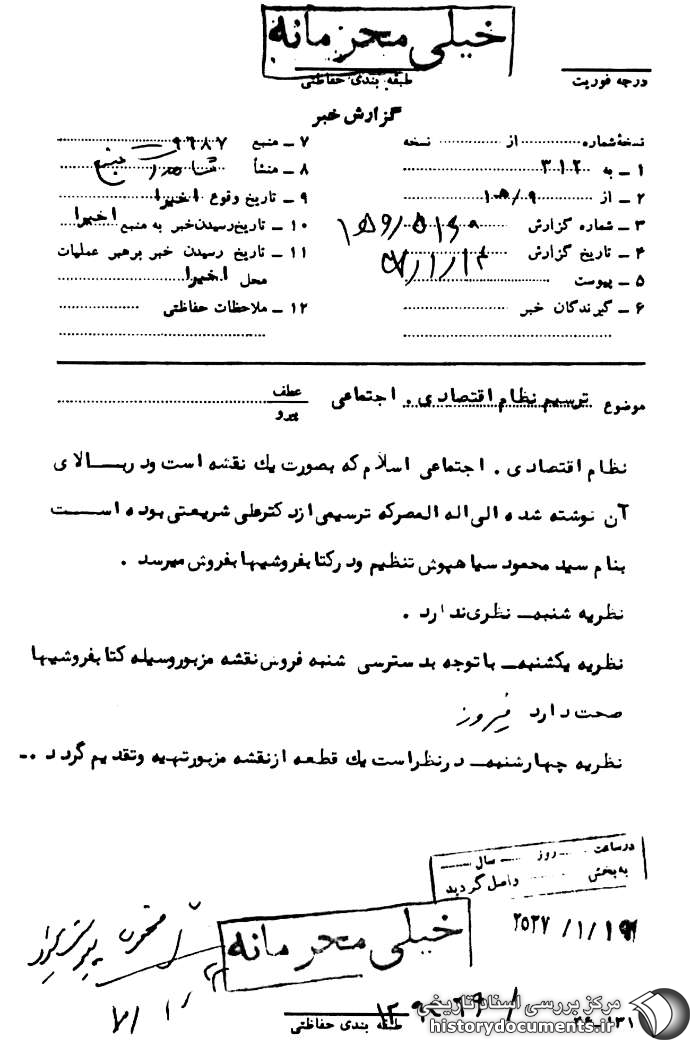 خیلی محرمانه
طبقه بندی حفاظتی
درجه فوریت
گزارش خبر
نسخهٔ شماره ........ از ........ نسخه
۱ ـ به ۳۱۲
۲ ـ از ۱۵/۹
۳ ـ شماره گزارش
۴ ـ تاریخ گزارش
۵ ـ پیوست
۶ ـ گیرندگان خبر
۷ ـ منبع ۹۶۸۷
۸ ـ منشأ
۹ ـ تاریخ وقوع اخیرا
۱۰ ـ تاریخ رسیدن خبر به منبع اخیرا
۱۱ ـ تاریخ رسیدن خبر برهبر عملیات
محل اخیرا
۱۲ ـ ملاحظات حفاظتی
موضوع ترسیم نظام اقتصادی . اجتماعی
عطف
پیرو
نظام اقتصادی . اجتماعی اسلام که بصورت یك نقشه است ودربالای
آن نوشته شده الی اله المصرکه ترسیمی ازدکترعلی شریعتی بوده است
بنام سید محمود سیاهپوش تنظیم ودرکتابفروشیها بفروش میرسد .
نظریه شنبه ـ نظری ندارد .
نظریه یکشنبه ـ باتوجه بدسترسی شنبه فروش نقشه مزبوروسیله کتابفروشیها
صحت دارد فیروز
نظریه چهارشنبه ـ درنظراست یك قطعه ازنقشه مزبورتهیه وتقدیم گردد ..ـ
درساعت ..... روز ..... سال .....
به بخش ..... واصل گردید
خیلی محرمانه
طبقه بندی حفاظتی
مرکز بررسی اسناد تاریخی
historydocuments.ir